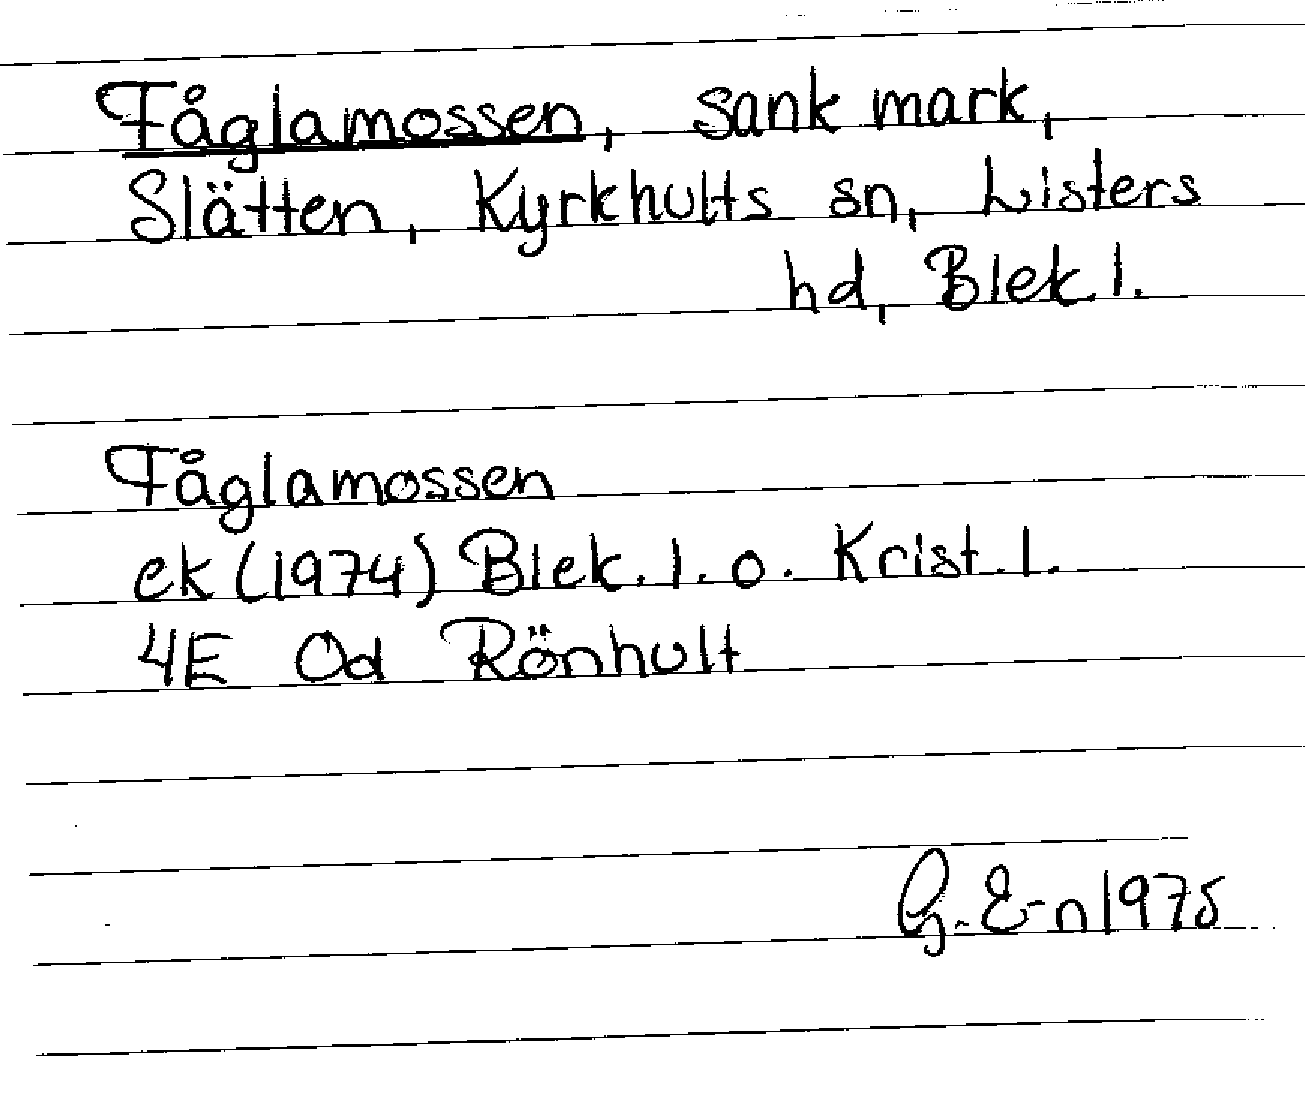 Fåglamossen, sank mark,
Slätten, Kyrkhults sn, Listers
hd, Blek. l.
Fåglamossen
ek (1974) Blek. l. o. Krist. l.
4E Od Rönhult
G. E-n 1975